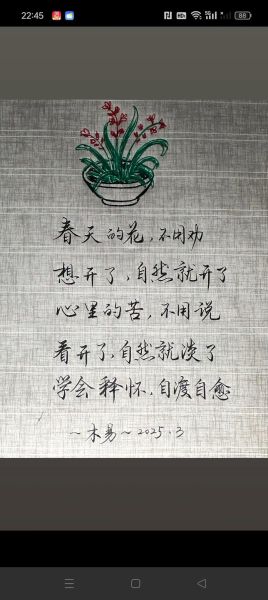 22:45
88
春天的花，不用劝
想开了，自然就开了
心里的苦，不用说
看开了，自然就淡了
学会释怀，自渡自愈
~木易~2025.3